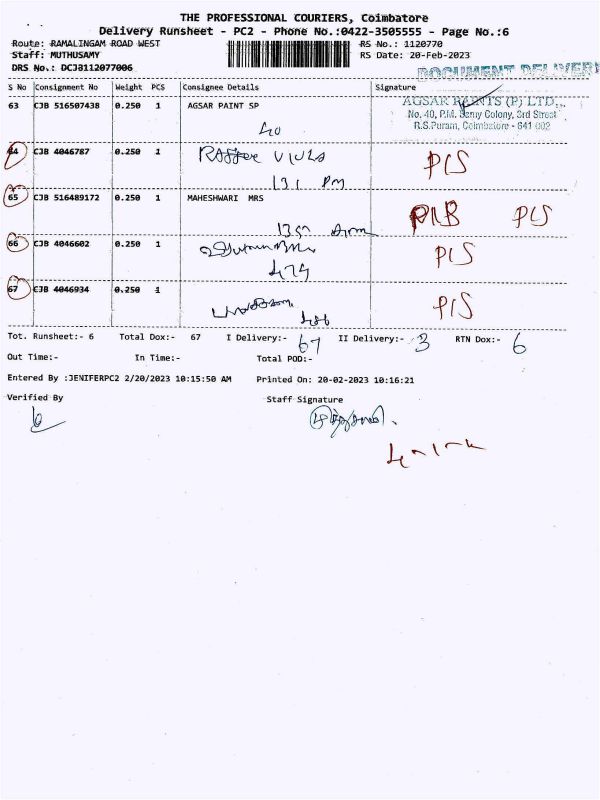 THE PROFESSIONAL COURIERS, Coimbatore
Delivery Runsheet - PC2 - Phone No.:0422-3505555 - Page No.:6
Route: RAMALINGAM ROAD WEST RS No.: 1120770
Staff: MUTHUSAMY RS Date: 20-Feb-2023
DRS No.: DCJB112077006
DOCUMENT DELIVERY
S No Consignment No Weight PCS Consignee Details Signature
63 CJB 516507438 0.250 1 AGSAR PAINT SP AGSAR PAINTS (P) LTD.,
No. 40, P.M. Samy Colony, 3rd Street
R.S.Puram, Coimbatore - 641 002
40
64 CJB 4046787 0.250 1 PLS
131 Pm
65 CJB 516489172 0.250 1 MAHESHWARI MRS PLS
66 CJB 4046602 0.250 1 PLS
474
67 CJB 4046934 0.250 1 PLS
486
Tot. Runsheet:- 6 Total Dox:- 67 I Delivery:- 67 II Delivery:- 3 RTN Dox:- 6
Out Time:- In Time:- Total POD:-
Entered By :JENIFERPC2 2/20/2023 10:15:50 AM Printed On: 20-02-2023 10:16:21
Verified By Staff Signature